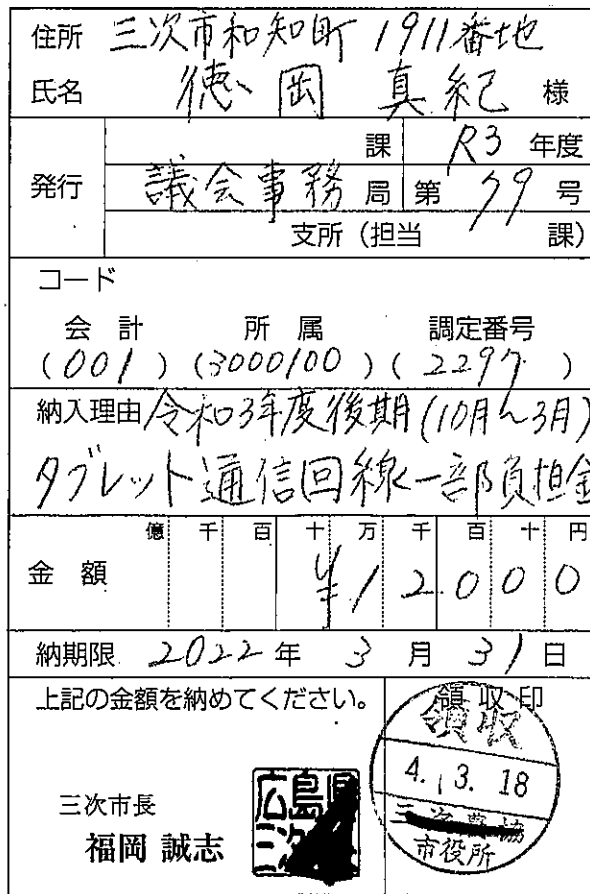 住所 三次市和知町 1911番地
氏名 徳岡 真紀 様
課 R3 年度
発行 議会事務局 第 79 号
支所(担当 課)
コード
会計 所属 調定番号
(001) (3000100) (2297)
納入理由 令和3年度後期(10月~3月)
タブレット通信回線一部負担金
億 千 百 十 万 千 百 十 円
金額 ¥12000
納期限 2022年 3月 31日
上記の金額を納めてください。
領収印
領収
4. 3. 18
三次農協
市役所
三次市長
福岡 誠志
広島県
三次